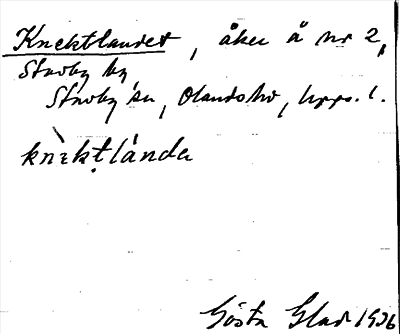 Knektlandet, åker å nr 2,
Stavby by
Stavby sn, Olands hd, Upps. l.
knektlanda
Gösta Glad 1936